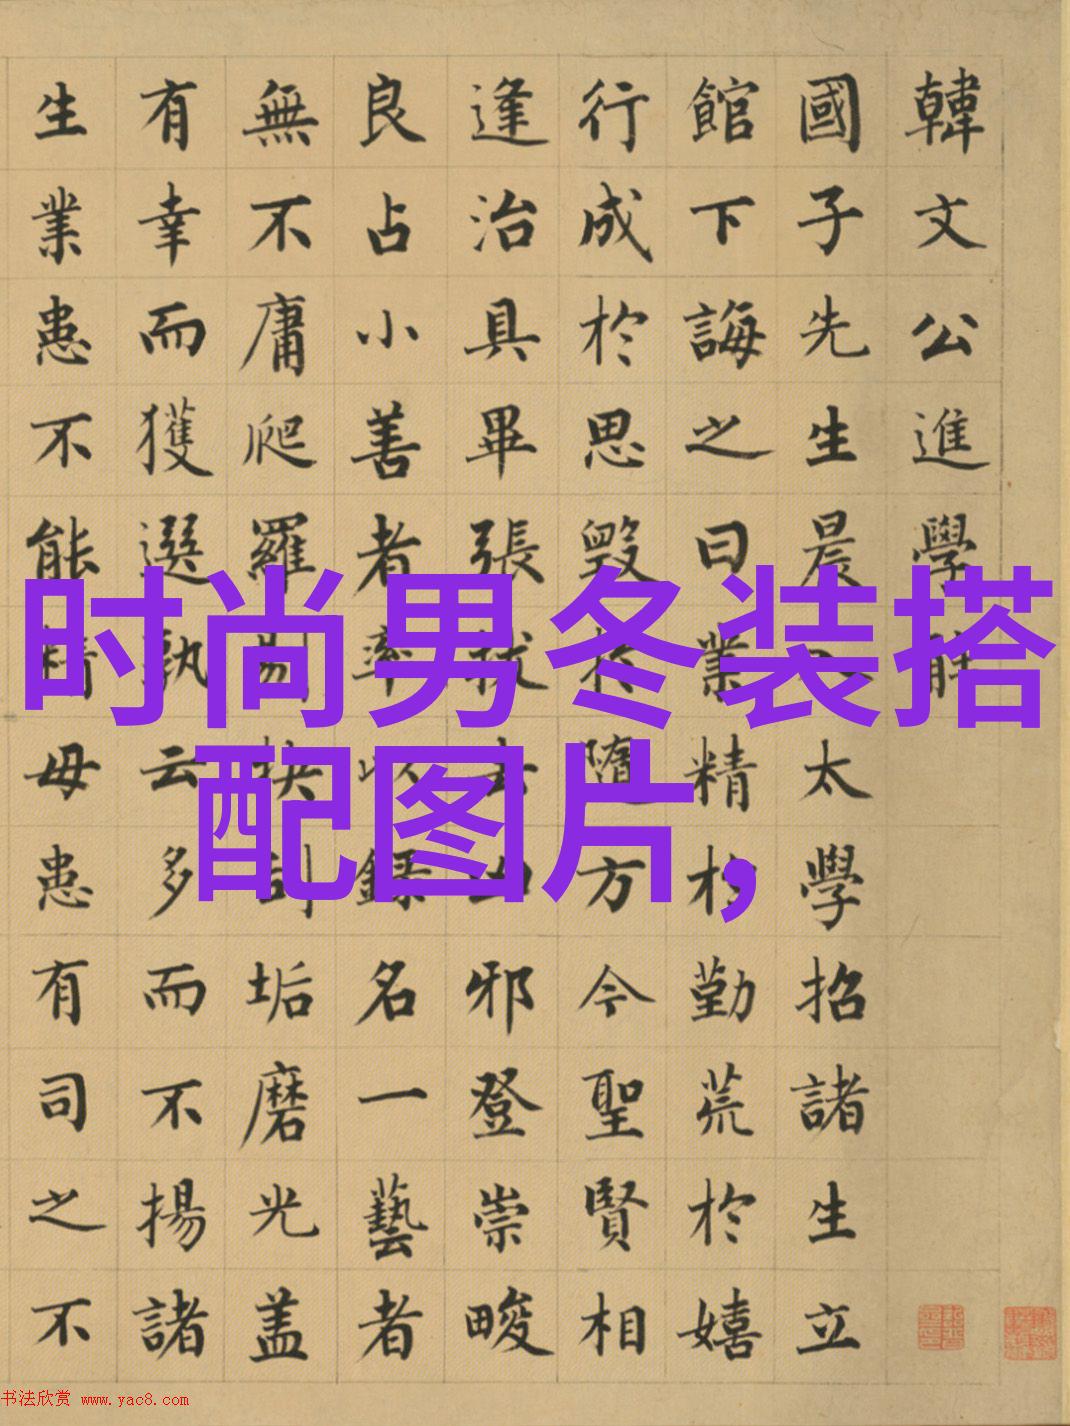 韓文公進學解
國子先生晨入太學招諸生立
館下誨之曰業精於勤荒於嬉
行成於思毀於隨方今聖賢相
逢治具畢張拔去凶邪登崇畯
良占小善者率以錄名一藝者
無不庸爬羅剔抉刮垢磨光盖
有幸而獲選孰云多而不揚諸
生業患不能精母患有司之不
时尚男冬装搭
配图片,
书法欣赏 www.yac8.com